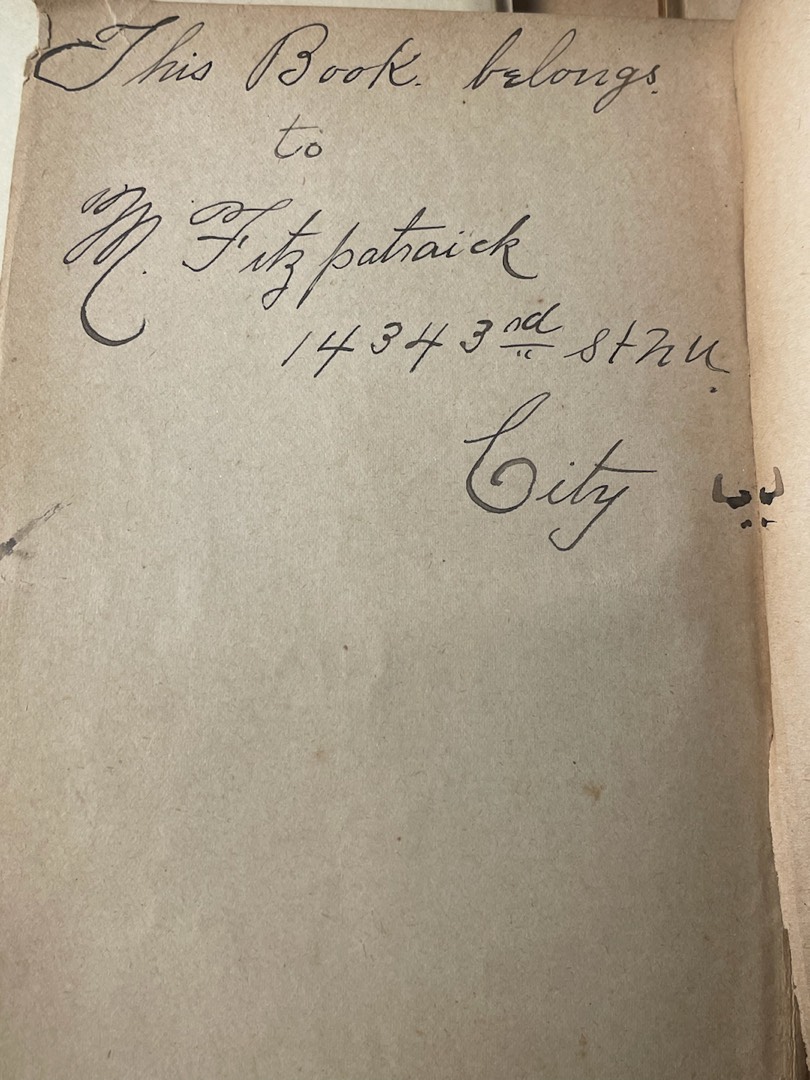 This Book. belongs.
to
M. Fitzpatraick
1434 3rd St N W.
City